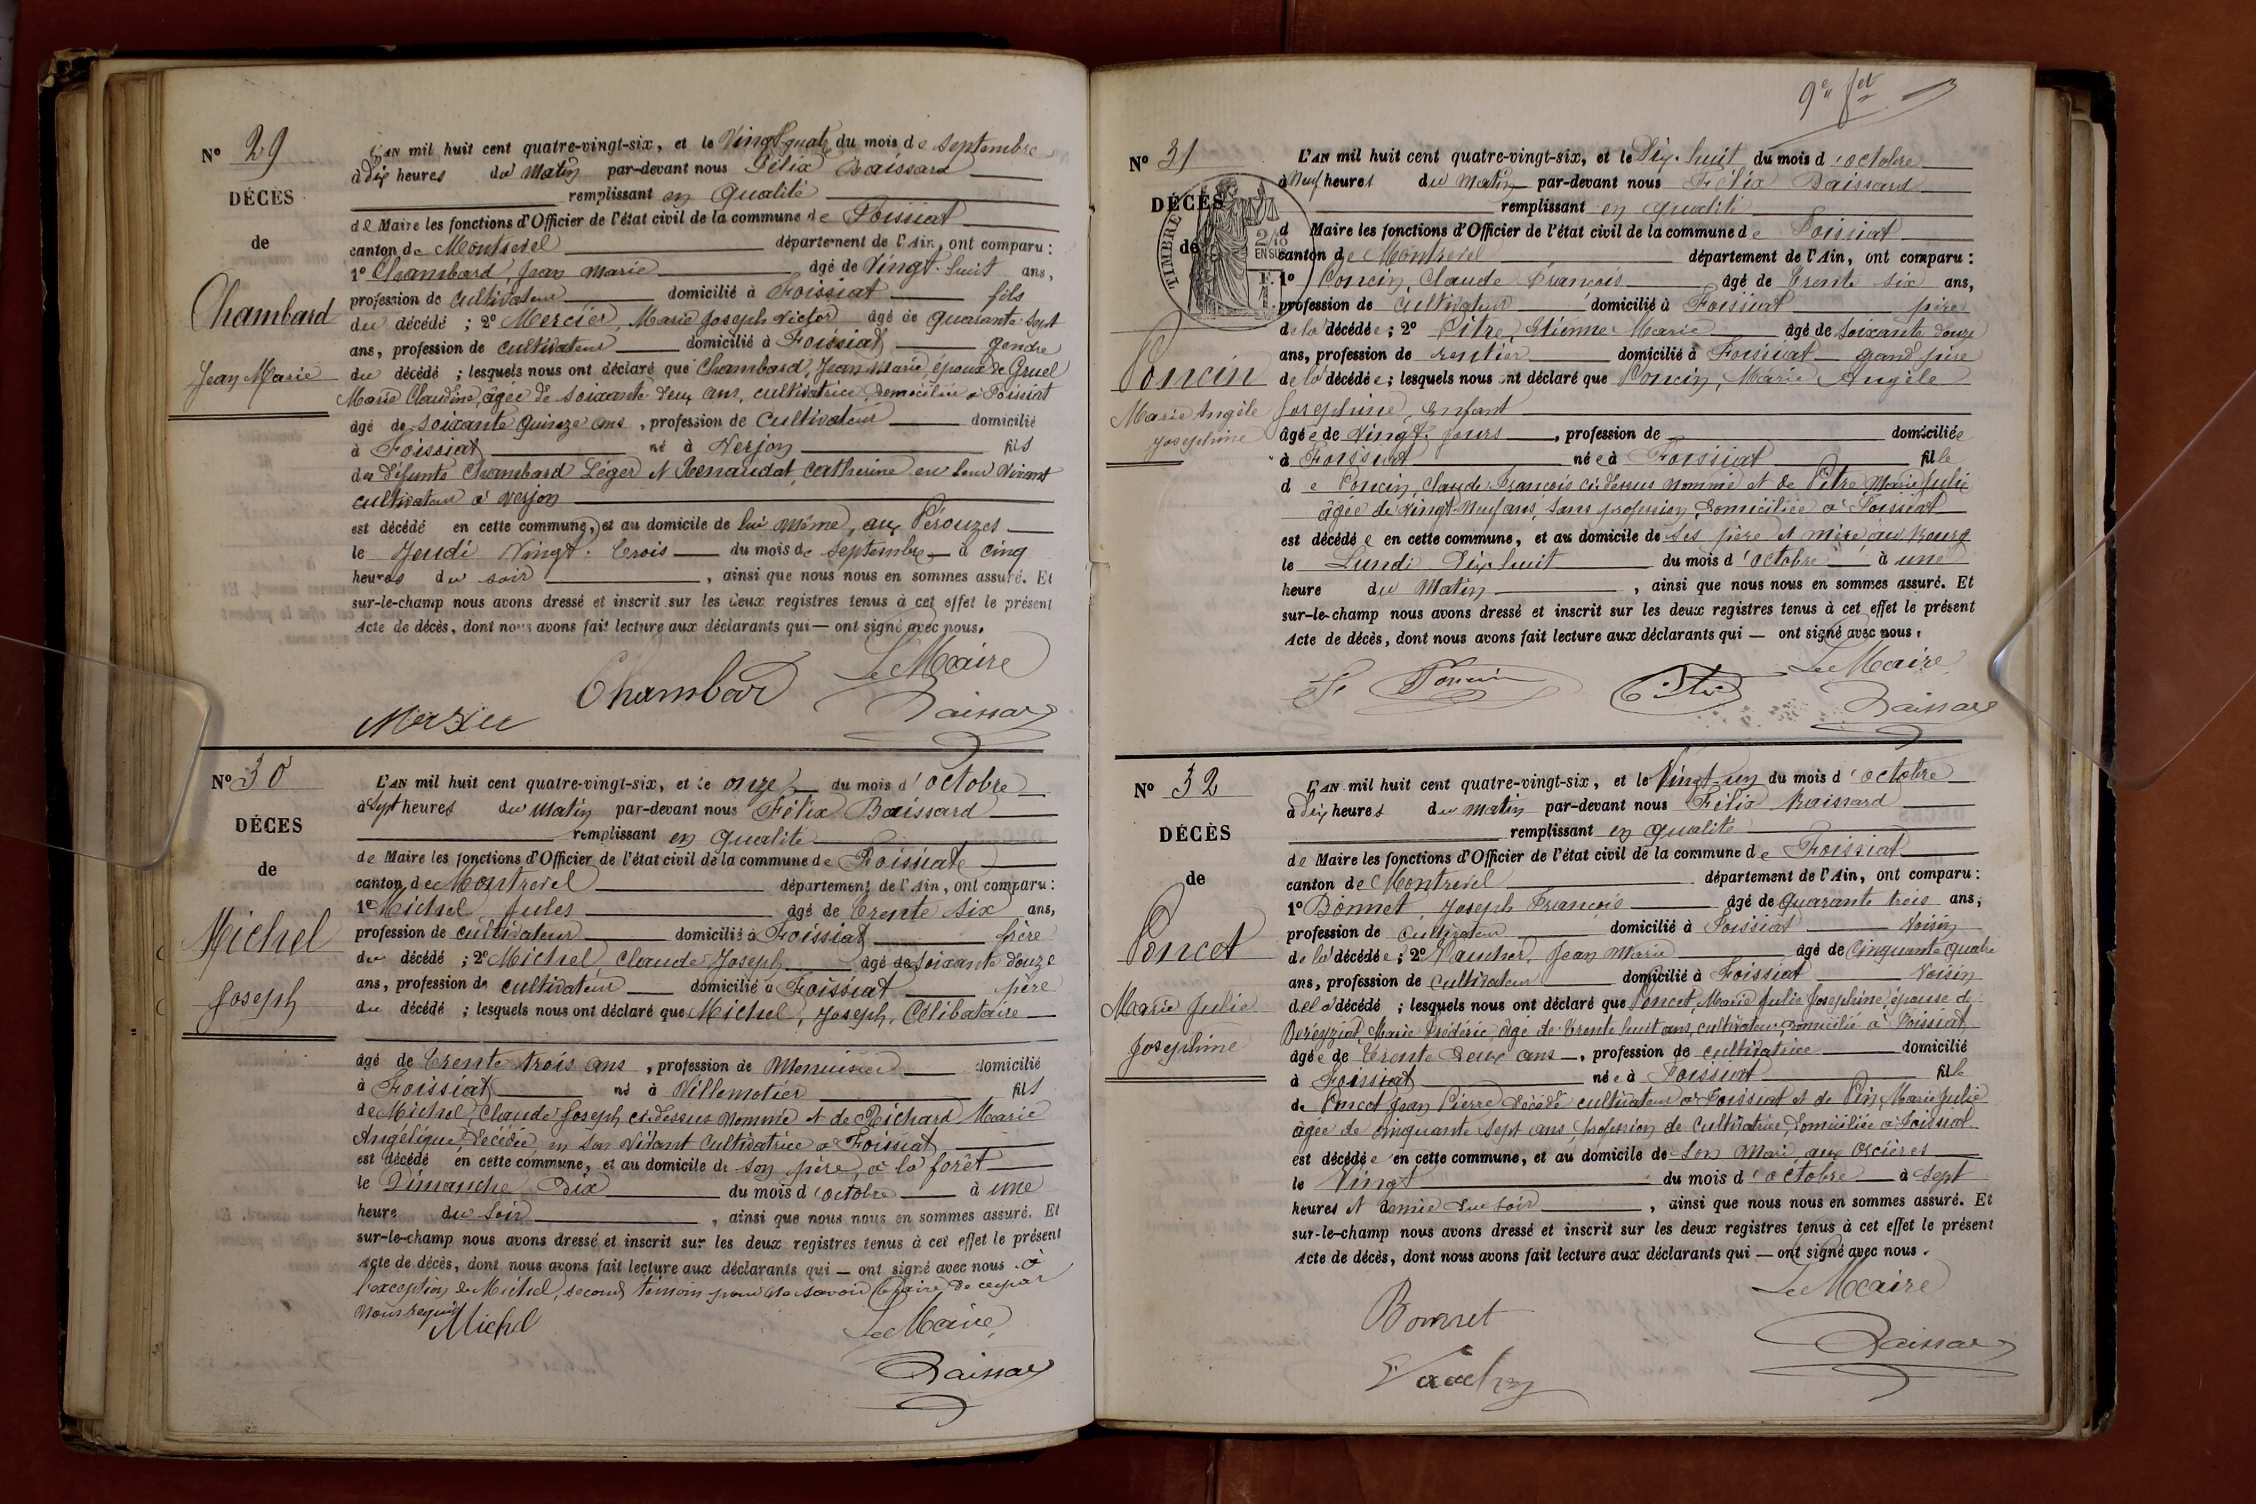 N° 29
DÉCÈS
de
Chambard
Jean Marie
L'AN mil huit cent quatre-vingt-six, et le Vingt quatre du mois de septembre
à dix heures du Matin par-devant nous Félix Baissard
remplissant en qualité
de Maire les fonctions d'Officier de l'état civil de la commune de Foissiat
canton de Montrevel département de l'Ain, ont comparu :
1° Chambard, Jean Marie âgé de Vingt-huit ans,
profession de cultivateur domicilié à Foissiat fils
du décédé ; 2° Mercier, Marie Joseph Victor âgé de quarante-sept
ans, profession de cultivateur domicilié à Foissiat gendre
du décédé ; lesquels nous ont déclaré que Chambard, Jean Marie, époux de Gruel
Marie Claudine, âgée de soixante deux ans, cultivatrice, domiciliée à Foissiat
âgé de soixante quinze ans, profession de cultivateur domicilié
à Foissiat né à Verjon fils
des défunts Chambard Léger et Renaudat, Catherine en leur vivant
cultivateur à Verjon
est décédé en cette commune, et au domicile de lui même, aux Pérouzes
le Jeudi Vingt-trois du mois de septembre à cinq
heures du soir, ainsi que nous nous en sommes assuré. Et
sur-le-champ nous avons dressé et inscrit sur les deux registres tenus à cet effet le présent
Acte de décès, dont nous avons fait lecture aux déclarants qui — ont signé avec nous.
Le Maire
Chambard
Baissard
Mercier
N° 30
DÉCÈS
de
Michel
Joseph
L'AN mil huit cent quatre-vingt-six, et le onze du mois d'octobre
à sept heures du Matin par-devant nous Félix Baissard
remplissant en qualité
de Maire les fonctions d'Officier de l'état civil de la commune de Foissiat
canton de Montrevel département de l'Ain, ont comparu :
1° Michel Jules âgé de trente six ans,
profession de cultivateur domicilié à Foissiat frère
du décédé ; 2° Michel Claude Joseph âgé de soixante douze
ans, profession de cultivateur domicilié à Foissiat père
du décédé ; lesquels nous ont déclaré que Michel, Joseph, Célibataire
âgé de trente trois ans, profession de Menuisier domicilié
à Foissiat né à Villemotier fils
de Michel, Claude Joseph ci-dessus nommé et de Richard Marie
Angélique, décédée, en son vivant cultivatrice à Foissiat
est décédé en cette commune, et au domicile de son père, à la forêt
le Dimanche Dix du mois d'octobre à une
heure du soir, ainsi que nous nous en sommes assuré. Et
sur-le-champ nous avons dressé et inscrit sur les deux registres tenus à cet effet le présent
Acte de décès, dont nous avons fait lecture aux déclarants qui — ont signé avec nous. à
l'exception de Michel, second témoin pour ne savoir le faire de ce par
nous requis
Michel
Le Maire
Baissard
9e fet
N° 31
DÉCÈS
de
TIMBRE
2/10 EN SUS
Poncin
Marie Angèle
Josephine
L'AN mil huit cent quatre-vingt-six, et le Dix-huit du mois d'octobre
à Neuf heures du Matin par-devant nous Félix Baissard
remplissant en qualité
d Maire les fonctions d'Officier de l'état civil de la commune de Foissiat
canton de Montrevel département de l'Ain, ont comparu :
1° Poncin, Claude François âgé de trente six ans,
profession de cultivateur domicilié à Foissiat père
de la décédée ; 2° Pitre, Etienne Marie âgé de soixante douze
ans, profession de rentier domicilié à Foissiat grand père
de la décédée ; lesquels nous ont déclaré que Poncin, Marie Angèle
Josephine, enfant
âgée de Vingt jours, profession de domiciliée
à Foissiat née à Foissiat fille
de Poncin, Claude François ci-dessus nommé et de Pitre Marie Julie
âgée de vingt-neuf ans, sans profession, domiciliée à Foissiat
est décédée en cette commune, et au domicile de ses père et mère au bourg
le Lundi Dix-huit du mois d'octobre à une
heure du Matin, ainsi que nous nous en sommes assuré. Et
sur-le-champ nous avons dressé et inscrit sur les deux registres tenus à cet effet le présent
Acte de décès, dont nous avons fait lecture aux déclarants qui — ont signé avec nous.
Le Maire
Poncin
Pitre
Baissard
N° 32
DÉCÈS
de
Poncet
Marie Julie
Josephine
L'AN mil huit cent quatre-vingt-six, et le Vingt-un du mois d'octobre
à dix heures du matin par-devant nous Félix Baissard
remplissant en qualité
de Maire les fonctions d'Officier de l'état civil de la commune de Foissiat
canton de Montrevel département de l'Ain, ont comparu :
1° Bonnet Joseph François âgé de quarante trois ans,
profession de cultivateur domicilié à Foissiat Voisin
de la décédée ; 2° Vaucher, Jean Marie âgé de cinquante quatre
ans, profession de cultivateur domicilié à Foissiat Voisin
de la décédé ; lesquels nous ont déclaré que Poncet, Marie Julie Josephine épouse de
Béréyziat Marie Frédéric, âgé de trente huit ans, cultivateur, domicilié à Foissiat
âgée de trente deux ans, profession de cultivatrice domicilié
à Foissiat née à Foissiat fille
de Poncet Jean Pierre décédé cultivateur à Foissiat et de Pin, Marie Julie
âgée de cinquante sept ans, profession de cultivatrice, domiciliée à Foissiat
est décédée en cette commune, et au domicile de son Mari, aux Orcières
le Vingt du mois d'octobre à sept
heures et demie du soir, ainsi que nous nous en sommes assuré. Et
sur-le-champ nous avons dressé et inscrit sur les deux registres tenus à cet effet le présent
Acte de décès, dont nous avons fait lecture aux déclarants qui — ont signé avec nous.
Le Maire
Bonnet
Baissard